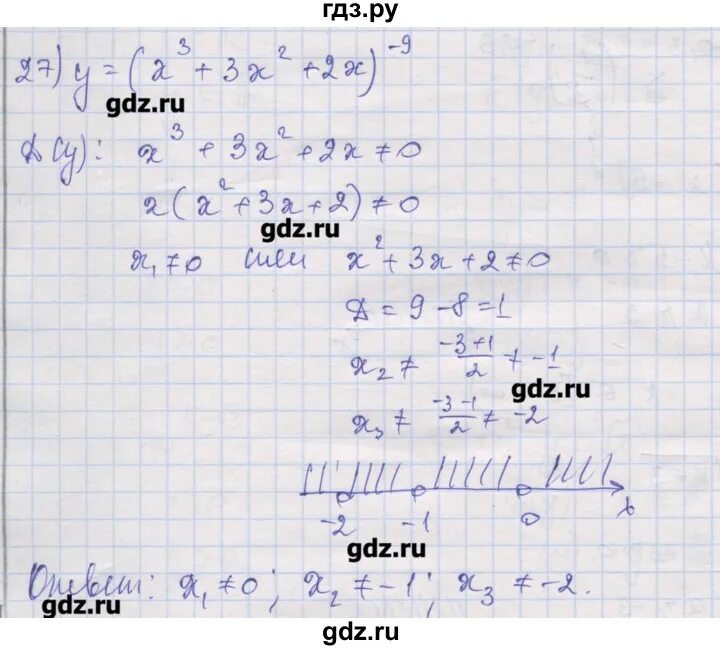 гдз.ру
27) y = (x³ + 3x² + 2x)⁻⁹
gdz.ru
D(y): x³ + 3x² + 2x ≠ 0
x(x² + 3x + 2) ≠ 0
gdz.ru
x₁ ≠ 0 или x² + 3x + 2 ≠ 0
D = 9 - 8 = 1
x₂ ≠ (-3+1)/2 ≠ -1
gdz.ru
x₃ ≠ (-3-1)/2 ≠ -2
-2 -1 0 x
gdz.ru
Ответ: x₁ ≠ 0; x₂ ≠ -1; x₃ ≠ -2.
gdz.ru
gdz.ru